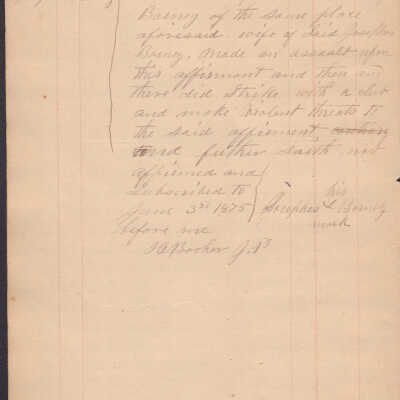 Barney of the same place
aforesaid. wife of Said Josephus
Barney. made an assault upon
this affirmant and then and
there did Strike with a club
and make violent threats to
the said affirment,
and further saith not
affirmed and
subscribed to
June 3rd 1875 his
Josephus X Barney
mark
before me
J.P.